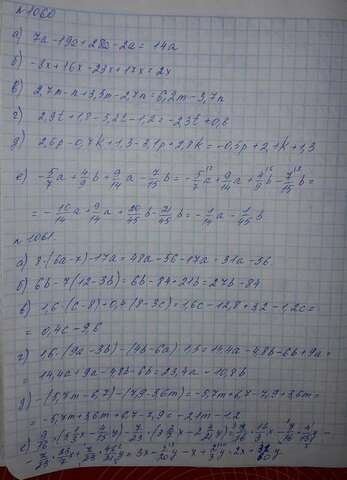 №1060
а) 7a - 19a + 28a - 2a = 14a
б) -8x + 16x - 23x + 17x = 2x
в) 2,7m - n + 3,5m - 2,7n = 6,2m - 3,7n
г) 2,9t + 1,8 - 5,2t - 1,2 = -2,3t + 0,6
д) 2,6p - 0,7k + 1,3 - 3,1p + 2,8k = -0,5p + 2,1k + 1,3
е) -5/7a + 4/9b + 9/14a - 7/15b = -5/7a + 9/14a + 4/9b - 7/15b =
= -10/14a + 9/14a + 20/45b - 21/45b = -1/14a - 1/45b
№1061.
а) 8·(6a-7) - 17a = 48a - 56 - 17a = 31a - 56
б) 6b - 7(12-3b) = 6b - 84 + 21b = 27b - 84
в) 1,6·(c-8) + 0,4(8-3c) = 1,6c - 12,8 + 3,2 - 1,2c =
= 0,4c - 9,6
г) 1,6·(9a-3b) - (4b-6a)·1,5 = 14,4a - 4,8b - 6b + 9a =
= 14,4a + 9a - 4,8b - 6b = 23,4a - 10,8b
д) -(5,7m-6,7) - (7,9-3,6m) = -5,7m + 6,7 - 7,9 + 3,6m =
= -5,7m + 3,6m + 6,7 - 7,9 = -2,1m - 1,2